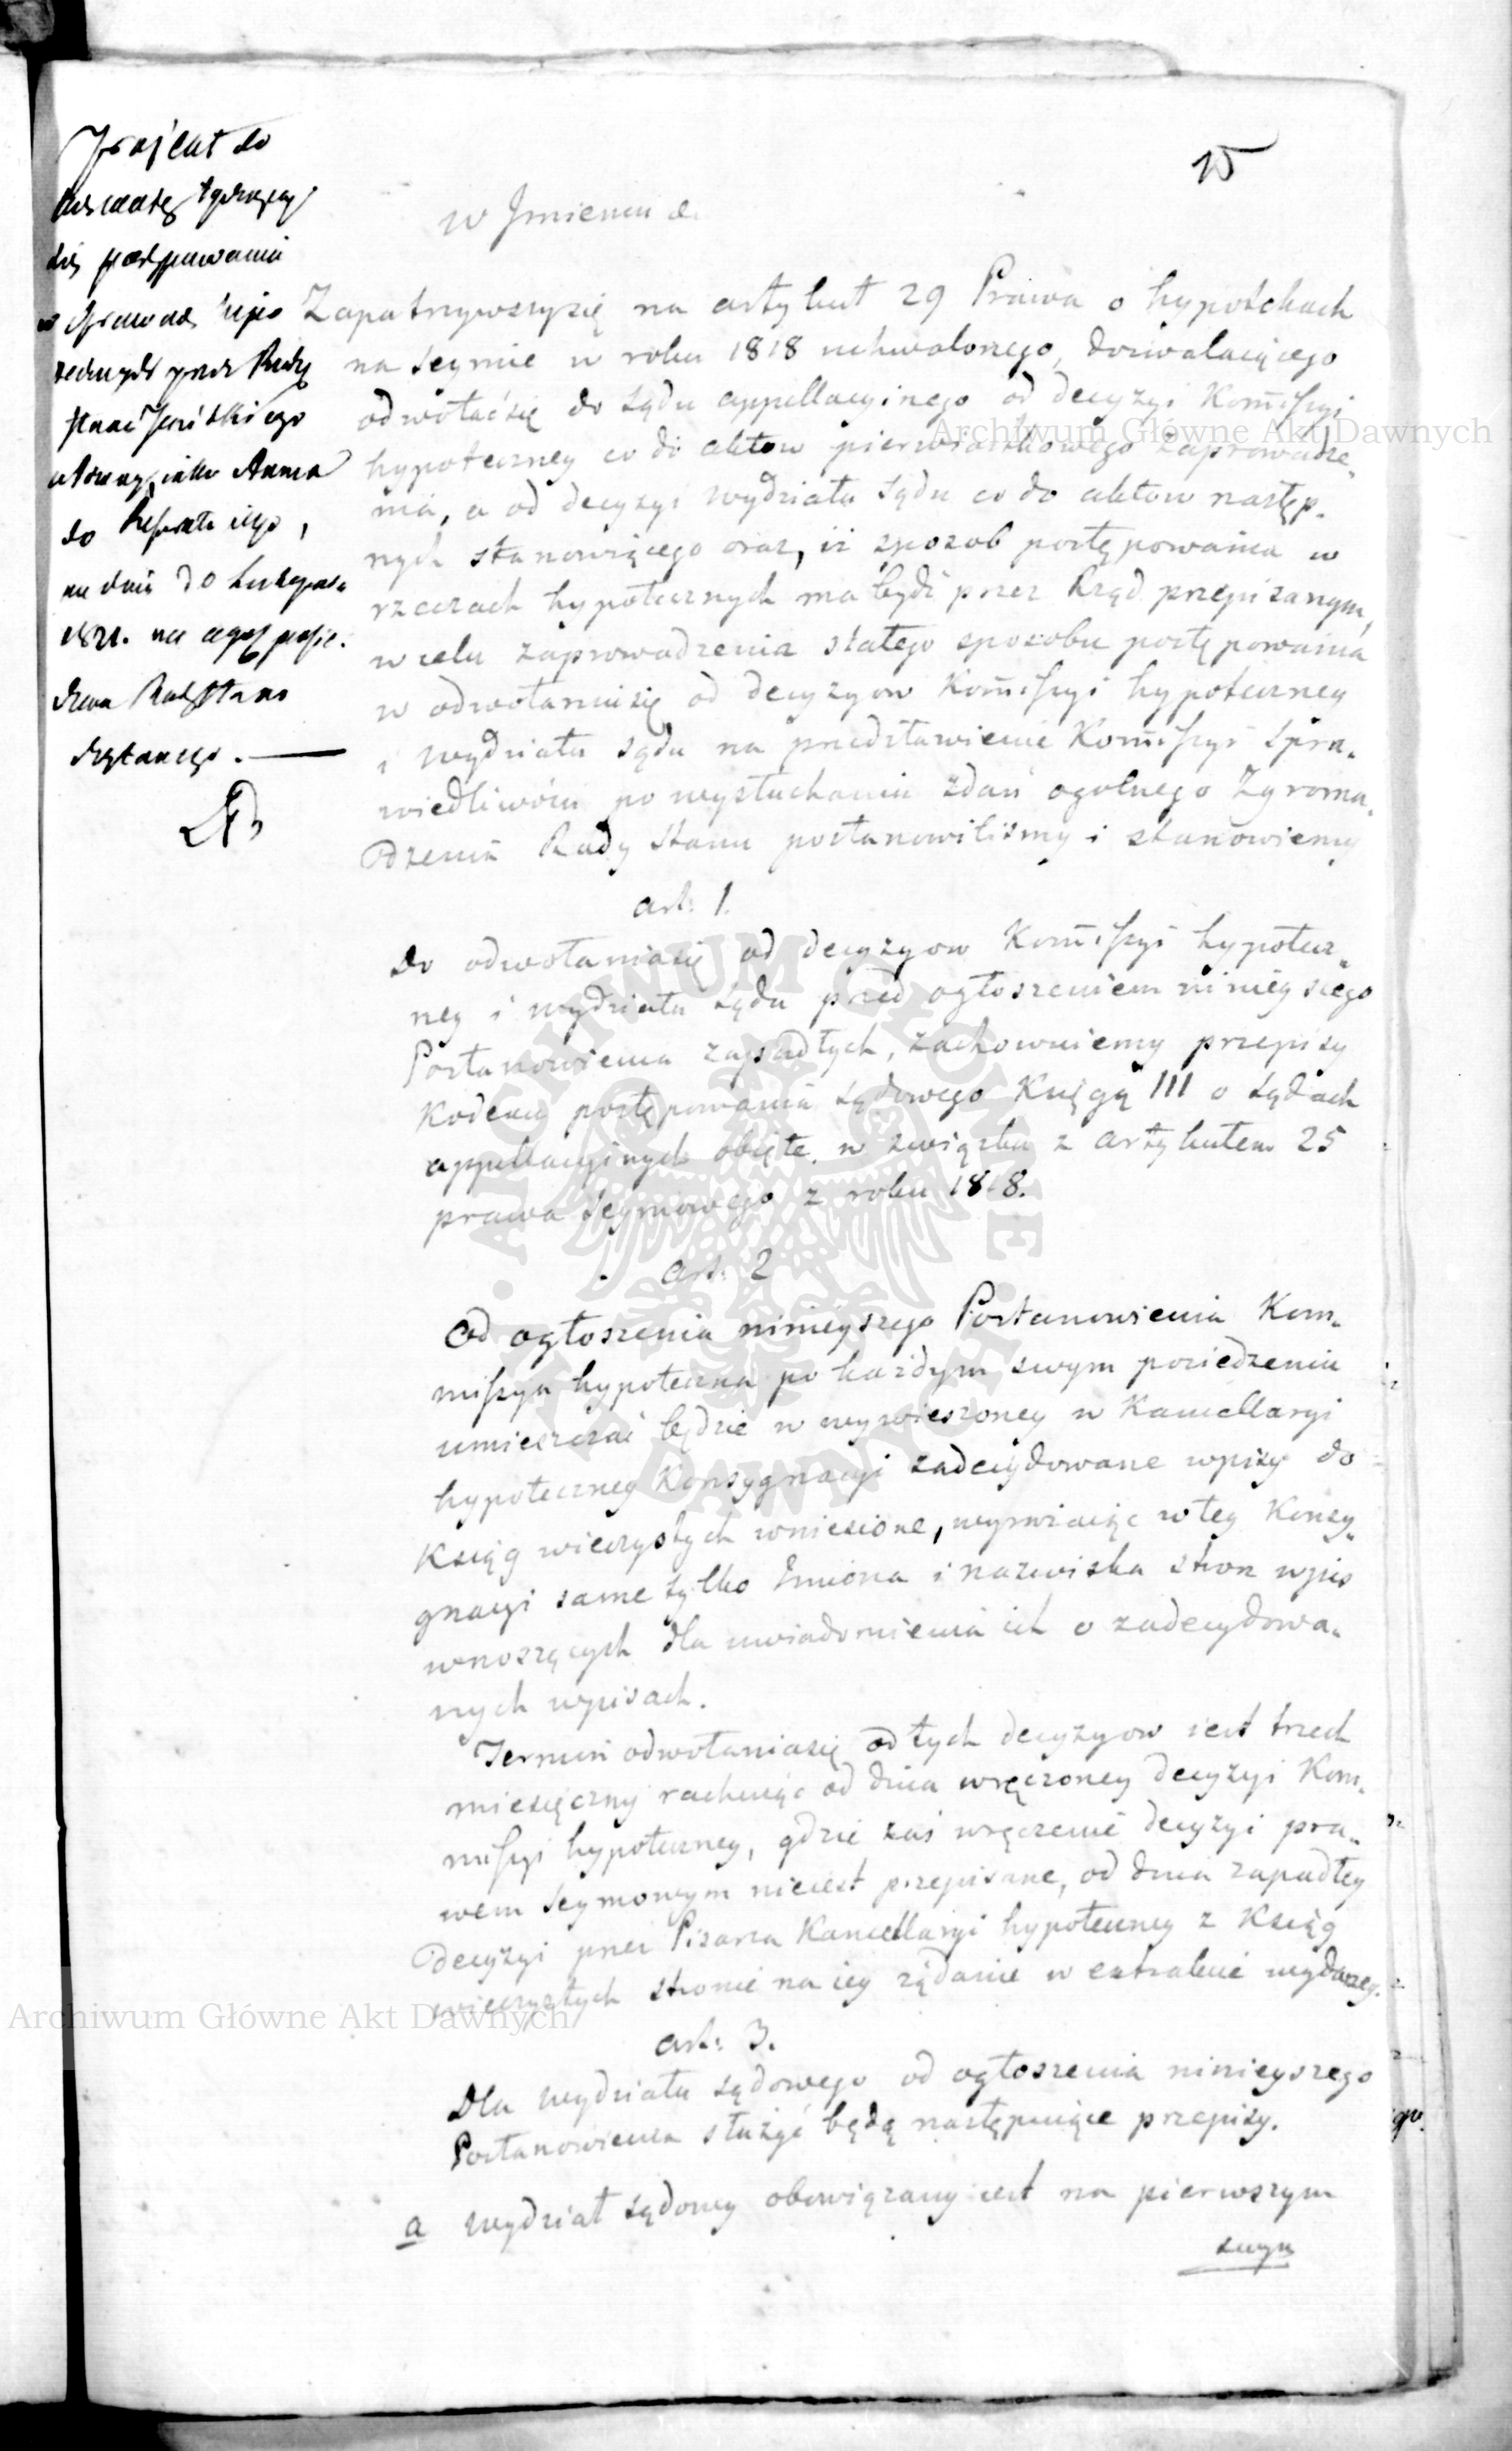 15
Projekt do
tyczącey
się postępowania
w Sprawach hypo
tecznych przez Radcę
Stanu
do Referatu iego,
na dniu 30 Listopada
1821. na posie-
dzeniu Rady Stanu
czytanego. —
w Jmieniu &
Zapatrzywszysię na artykuł 29 Prawa o hypotekach
na Seymie w roku 1818 uchwalonego, dozwalaiącego
odwołaćsię do Sądu appellacyinego od decyzyi Kom̄issyi
hypoteczney co do aktow pierwiastkowego zaprowadze„
nia, a od decyzyi wydziału Sądu co do aktow następ„
nych stanowiącego oraz, iż sposob postępowania w
rzeczach hypotecznych ma bydź przez Rząd przepisanym,
w celu zaprowadzenia stałego sposobu postępowania
w odwołaniusię od decyzyow Kom̄issyi hypoteczney
i wydziału Sądu na przedstawienie Kom̄issyi Spra„
wiedliwości po wysłuchaniu zdań ogolnego Zgroma„
dzenia Rady Stanu postanowiliśmy i stanowiemy
art: 1.
Do odwołaniasię od decyzyow Kom̄issyi hypotecz„
ney i wydziału Sądu przed ogłoszeniem ninieyszego
Postanowienia zapadłych, zachowuiemy przepisy
Kodexu postępowania Sądowego Księgą III o Sądach
appellacyinych obięte, w związku z artykułem 25
prawa Seymowego z roku 1818.
art: 2
Od ogłoszenia ninieyszego Postanowienia Kom„
missya hypoteczna po każdym swym posiedzeniu
umieszczać będzie w wywieszoney w Kancellaryi
hypoteczney Konsygnacyi zadecydowane wpisy do
Ksiąg wieczystych wniesione, wymieniaiąc w tey Konsy„
gnacyi same tylko Jmiona i nazwiska stron wpis
wnoszących dla uwiadomienia ich o zadecydowa„
nych wpisach.
Termin odwołaniasię od tych decyzyow iest trzech
miesięczny rachuiąc od dnia wręczoney decyzyi Kom„
missyi hypoteczney, gdzie zaś wręczenie decyzyi pra„
wem Seymowym nieiest przepisane, od dnia zapadłey
decyzyi przez Pisarza Kancellaryi hypoteczney z Ksiąg
wieczystych stronie na iey żądanie w extrakcie wydaney.
art: 3.
Dla wydziału sądowego od ogłoszenia ninieyszego
Postanowienia służyć będą następuiące przepisy.
a wydział sądowy obowiązany iest na pierwszym
swym
Archiwum Główne Akt Dawnych
Archiwum Główne Akt Dawnych
ARCHIWUM GŁÓWNE AKT DAWNYCH